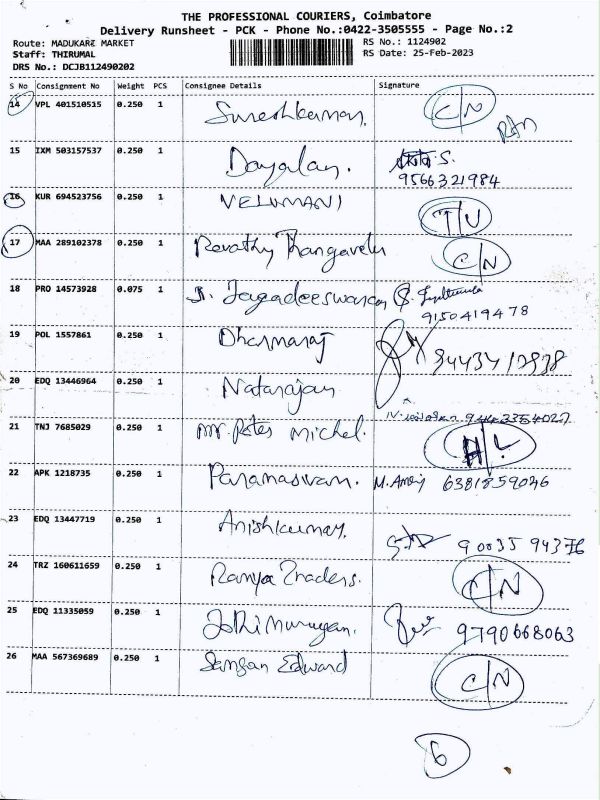 THE PROFESSIONAL COURIERS, Coimbatore
Delivery Runsheet - PCK - Phone No.:0422-3505555 - Page No.:2
Route: MADUKARI MARKET RS No.: 1124902
Staff: THIRUMAL RS Date: 25-Feb-2023
DRS No.: DCJB112490202
S No Consignment No Weight PCS Consignee Details Signature
14 VPL 401510515 0.250 1 Sureshkumar. C/N
15 IXM 503157537 0.250 1 Dayalan. S.
9566321984
16 KUR 694523756 0.250 1 VELUMANI
17 MAA 289102378 0.250 1 Revathy Thangavelu C/N
18 PRO 14573928 0.075 1 Jagadeeswaran
9150419478
19 POL 1557861 0.250 1 Dharmaraj
20 EDQ 13446964 0.250 1 Natarajan
21 TNJ 7685029 0.250 1 Mr. Michel.
22 APK 1218735 0.250 1 Paramasivam. 6381859046
23 EDQ 13447719 0.250 1 Anishkumar. 9003594376
24 TRZ 160611659 0.250 1 Ramya Traders. C/N
25 EDQ 11335059 0.250 1 Jothimurugan. 9790668063
26 MAA 567369689 0.250 1 Edward C/N
6